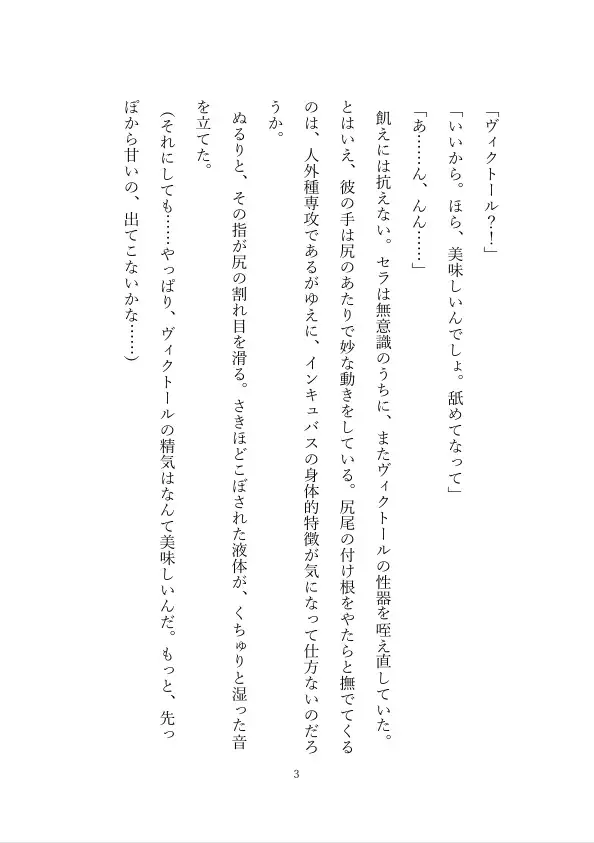 「ヴィクトール？！」
「いいから。ほら、美味しいんでしょ。舐めてなって」
「あ……ん、んん……」
飢えには抗えない。セラは無意識のうちに、またヴィクトールの性器を咥え直していた。
とはいえ、彼の手は尻のあたりで妙な動きをしている。尻尾の付け根をやたらと撫でてくる
のは、人外種専攻であるがゆえに、インキュバスの身体的特徴が気になって仕方ないのだろ
うか。
ぬるりと、その指が尻の割れ目を滑る。さきほどこぼされた液体が、くちゅりと湿った音
を立てた。
（それにしても……やっぱり、ヴィクトールの精気はなんて美味しいんだ。もっと、先っ
ぽから甘いの、出てこないかな……）
3